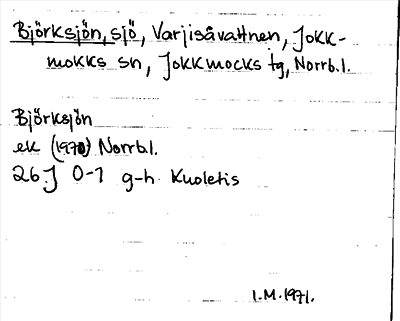 Björksjön, sjö, Varjisåvattnen, Jokk-
mokks sn, Jokkmocks tg, Norrb.l.
Björksjön
ek (1970) Norrb.l.
26J 0-1 g-h Kuoletis
I.M. 1971.